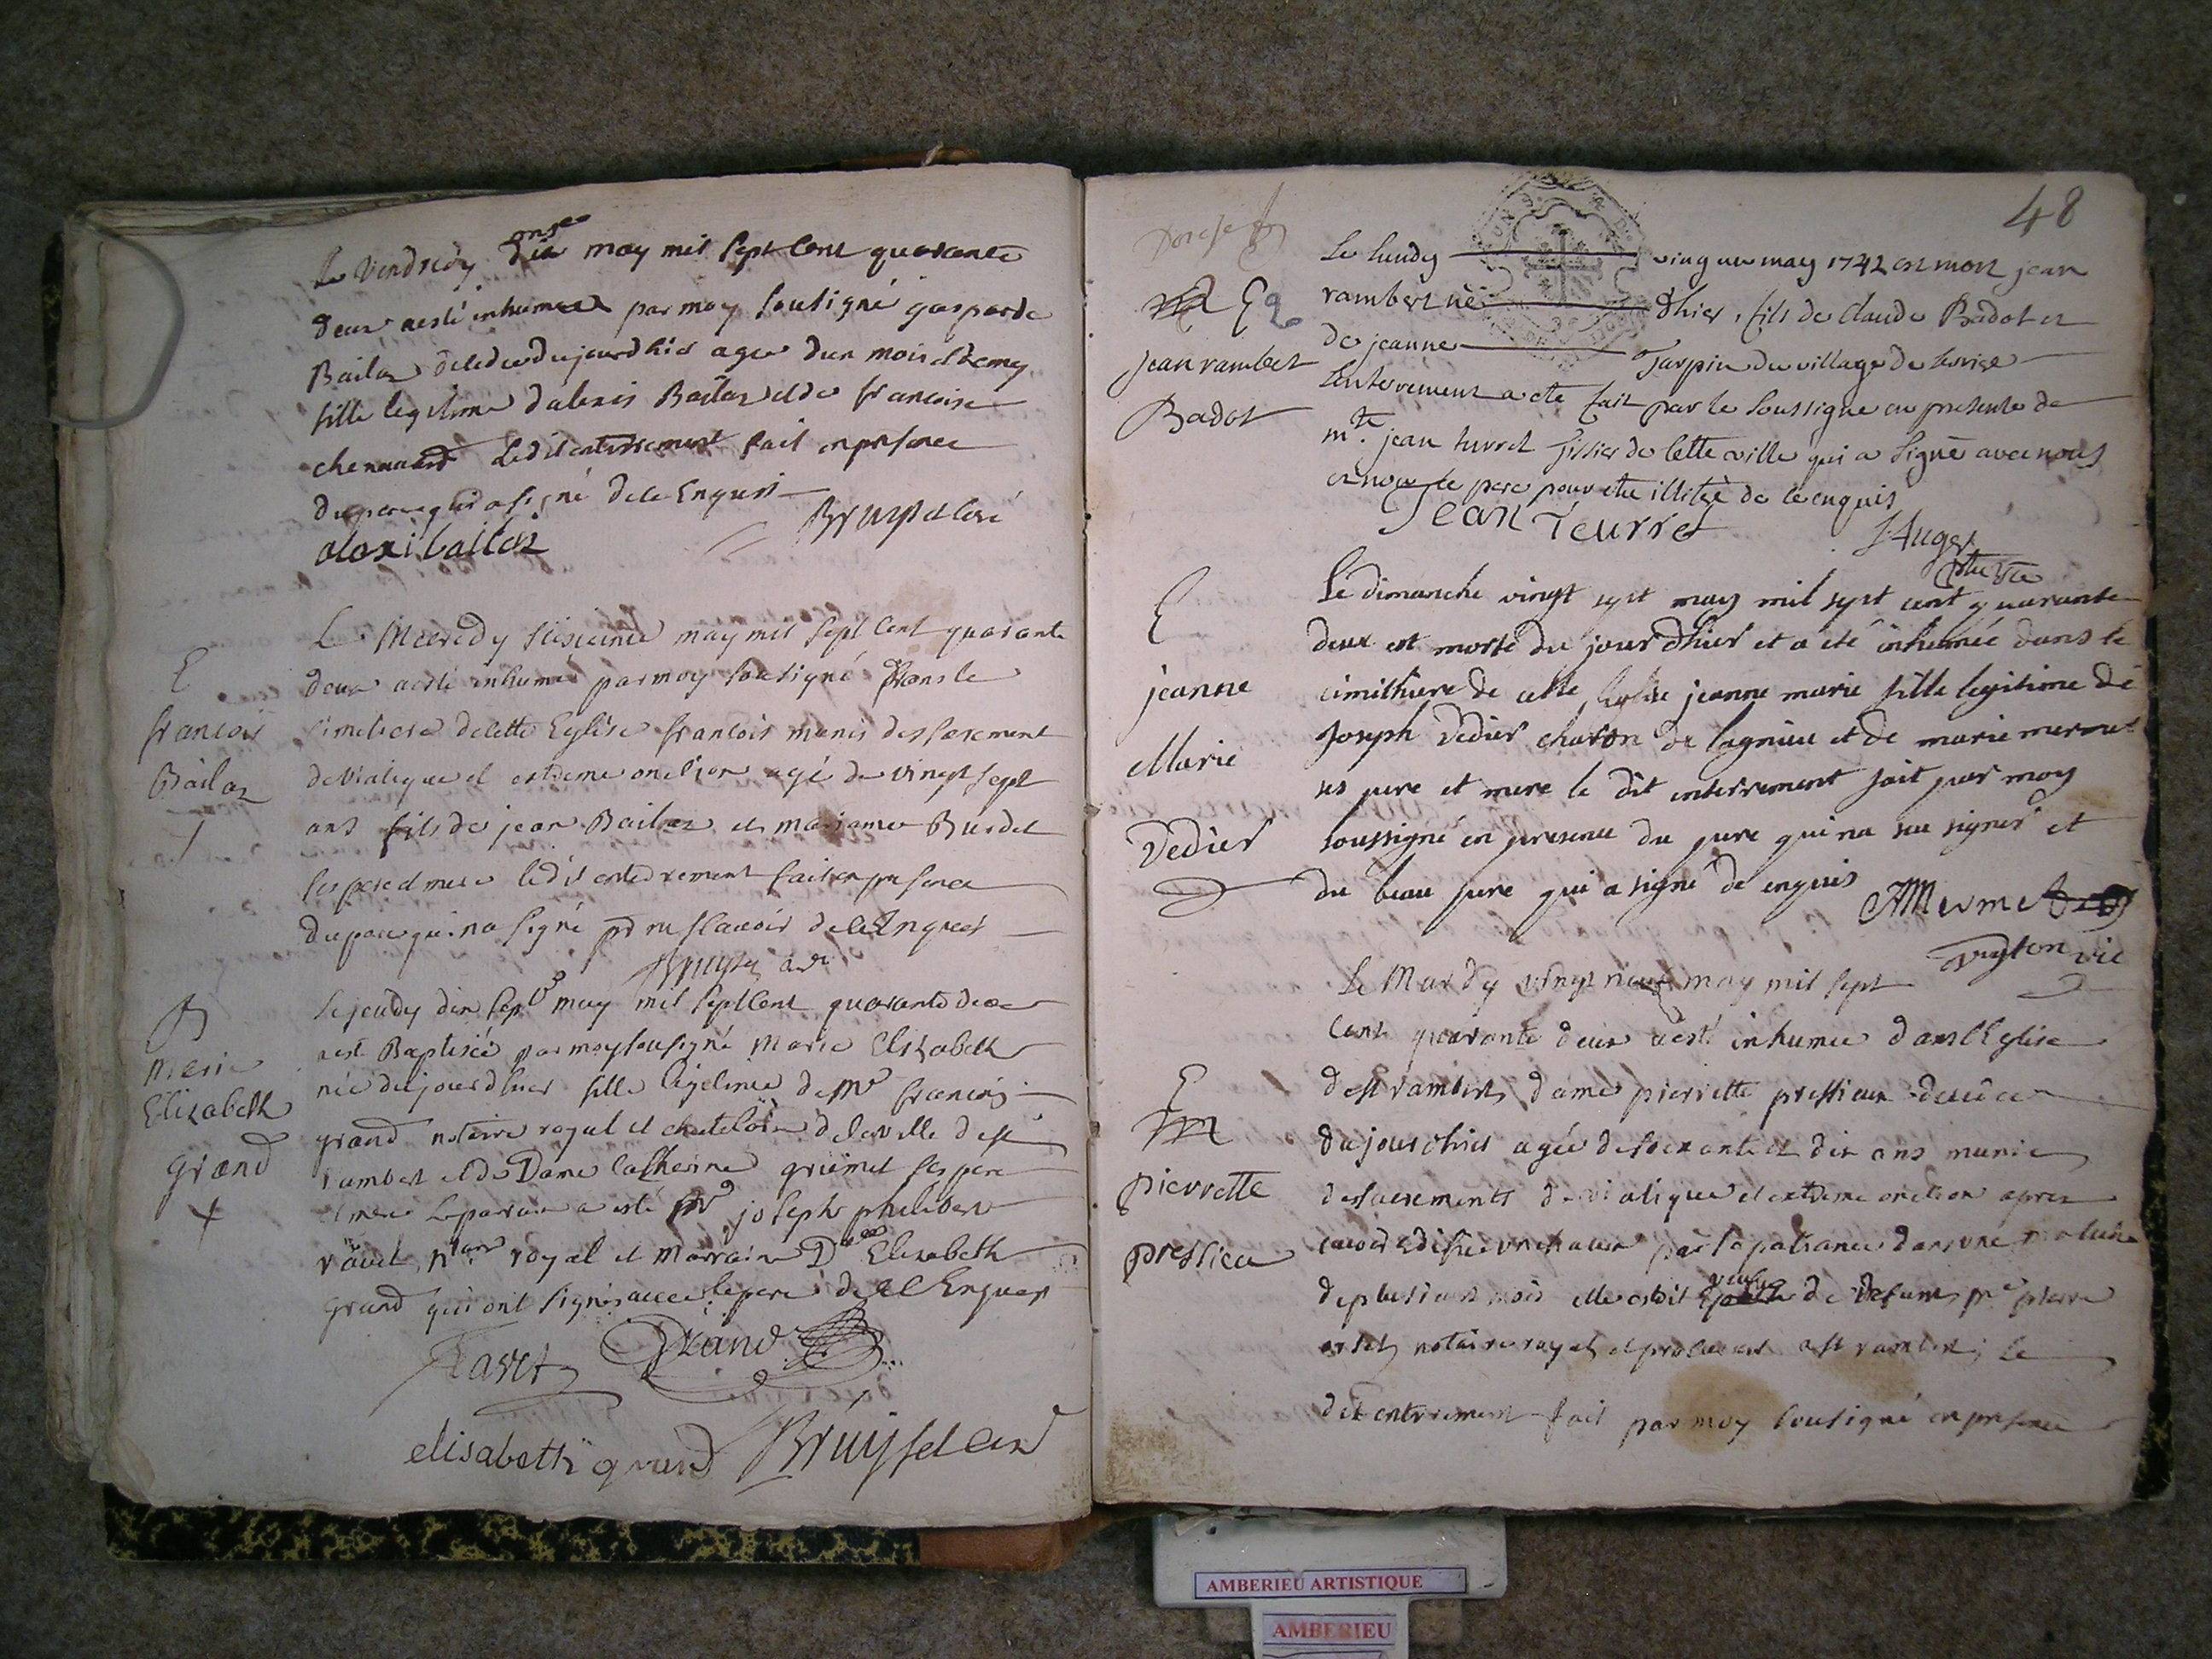 Le Vendredy onse may mil sept cent quarante
deux a esté inhumee par moy soussigné gasparde
Bailar decedee du jourdhier agee dun mois et demy
fille legitime d'alexis Bailar et de francoise
ledit enterrement fait en presence
du pere qui a signé de ce Enquis
alexi bailar
Le Mecredy may mil sept cent quarante
deux a esté inhumé par moy sousigné dans le
simetiere de cette Eglise francois munis des sacrement
de viatique et extreme onction agé de vingt sept
ans fils de jean Bailar et Burdet
ses pere et mere ledit enterrement fait en presence
du pere qui na signé pr ne scavoir de ce Enquis
E
francois
Bailar
Le jeudy dix sept may mil sept cent quarante deux
a esté Baptisée par moy sousigné Marie Elizabeth
née du jourdhier fille legitime de Mr francois
grand notaire royal et chatelain de la ville de st
rambert et de Dame Catherine grimet ses pere
et mere le parrain a esté Mr joseph philibert
ravet royal et Marraine Dlle Elizabeth
grand qui ont signés avec le pere de ce Enquis
B
Marie
Elizabeth
Grand
Ravet Grand
elisabeth grand
48
Le lundy vingt un may 1742 est mort jean
rambert né d'hier, fils de Claude Badot et
de jeanne Jarpin du village de
L'enterement a eté fait par le soussigné en presence de
mre jean turret de cette ville qui a signé avec nous
et non le pere pour etre illitéré de ce enquis
Jean Teurret
J. Auger
E
jean rambert
Badot
Le dimanche vingt sept may mil sept cent quarante
deux est morte du jour d'hier et a eté inhumée dans le
cimithiere de cette Eglise jeanne marie fille legitime de
Joseph Vedier charon de lagnieu et de marie mermet
ses pere et mere le dit enterrement fait par moy
soussigné en presence du pere qui na scu signer et
du beau pere qui a signé de enquis
E
jeanne
Marie
Vedier
Mermet
vic
Le Mardy vingt neuf may mil sept
cent quarante deux a esté inhumee dans l'Eglise
de st rambert dame pierrette pressieux
du jour d'hier agée de soixante et dix ans munie
des sacrements de viatique et extreme onction apres
avoir edifié un chacun par sa patiance dans une
de plusieurs mois elle estoit veufve de defunt Mre pierre
notaire royal et procureur a st rambert; le
dit enterrement fait par moy sousigné en presence
E
pierrette
pressieu
AMBERIEU ARTISTIQUE
AMBERIEU